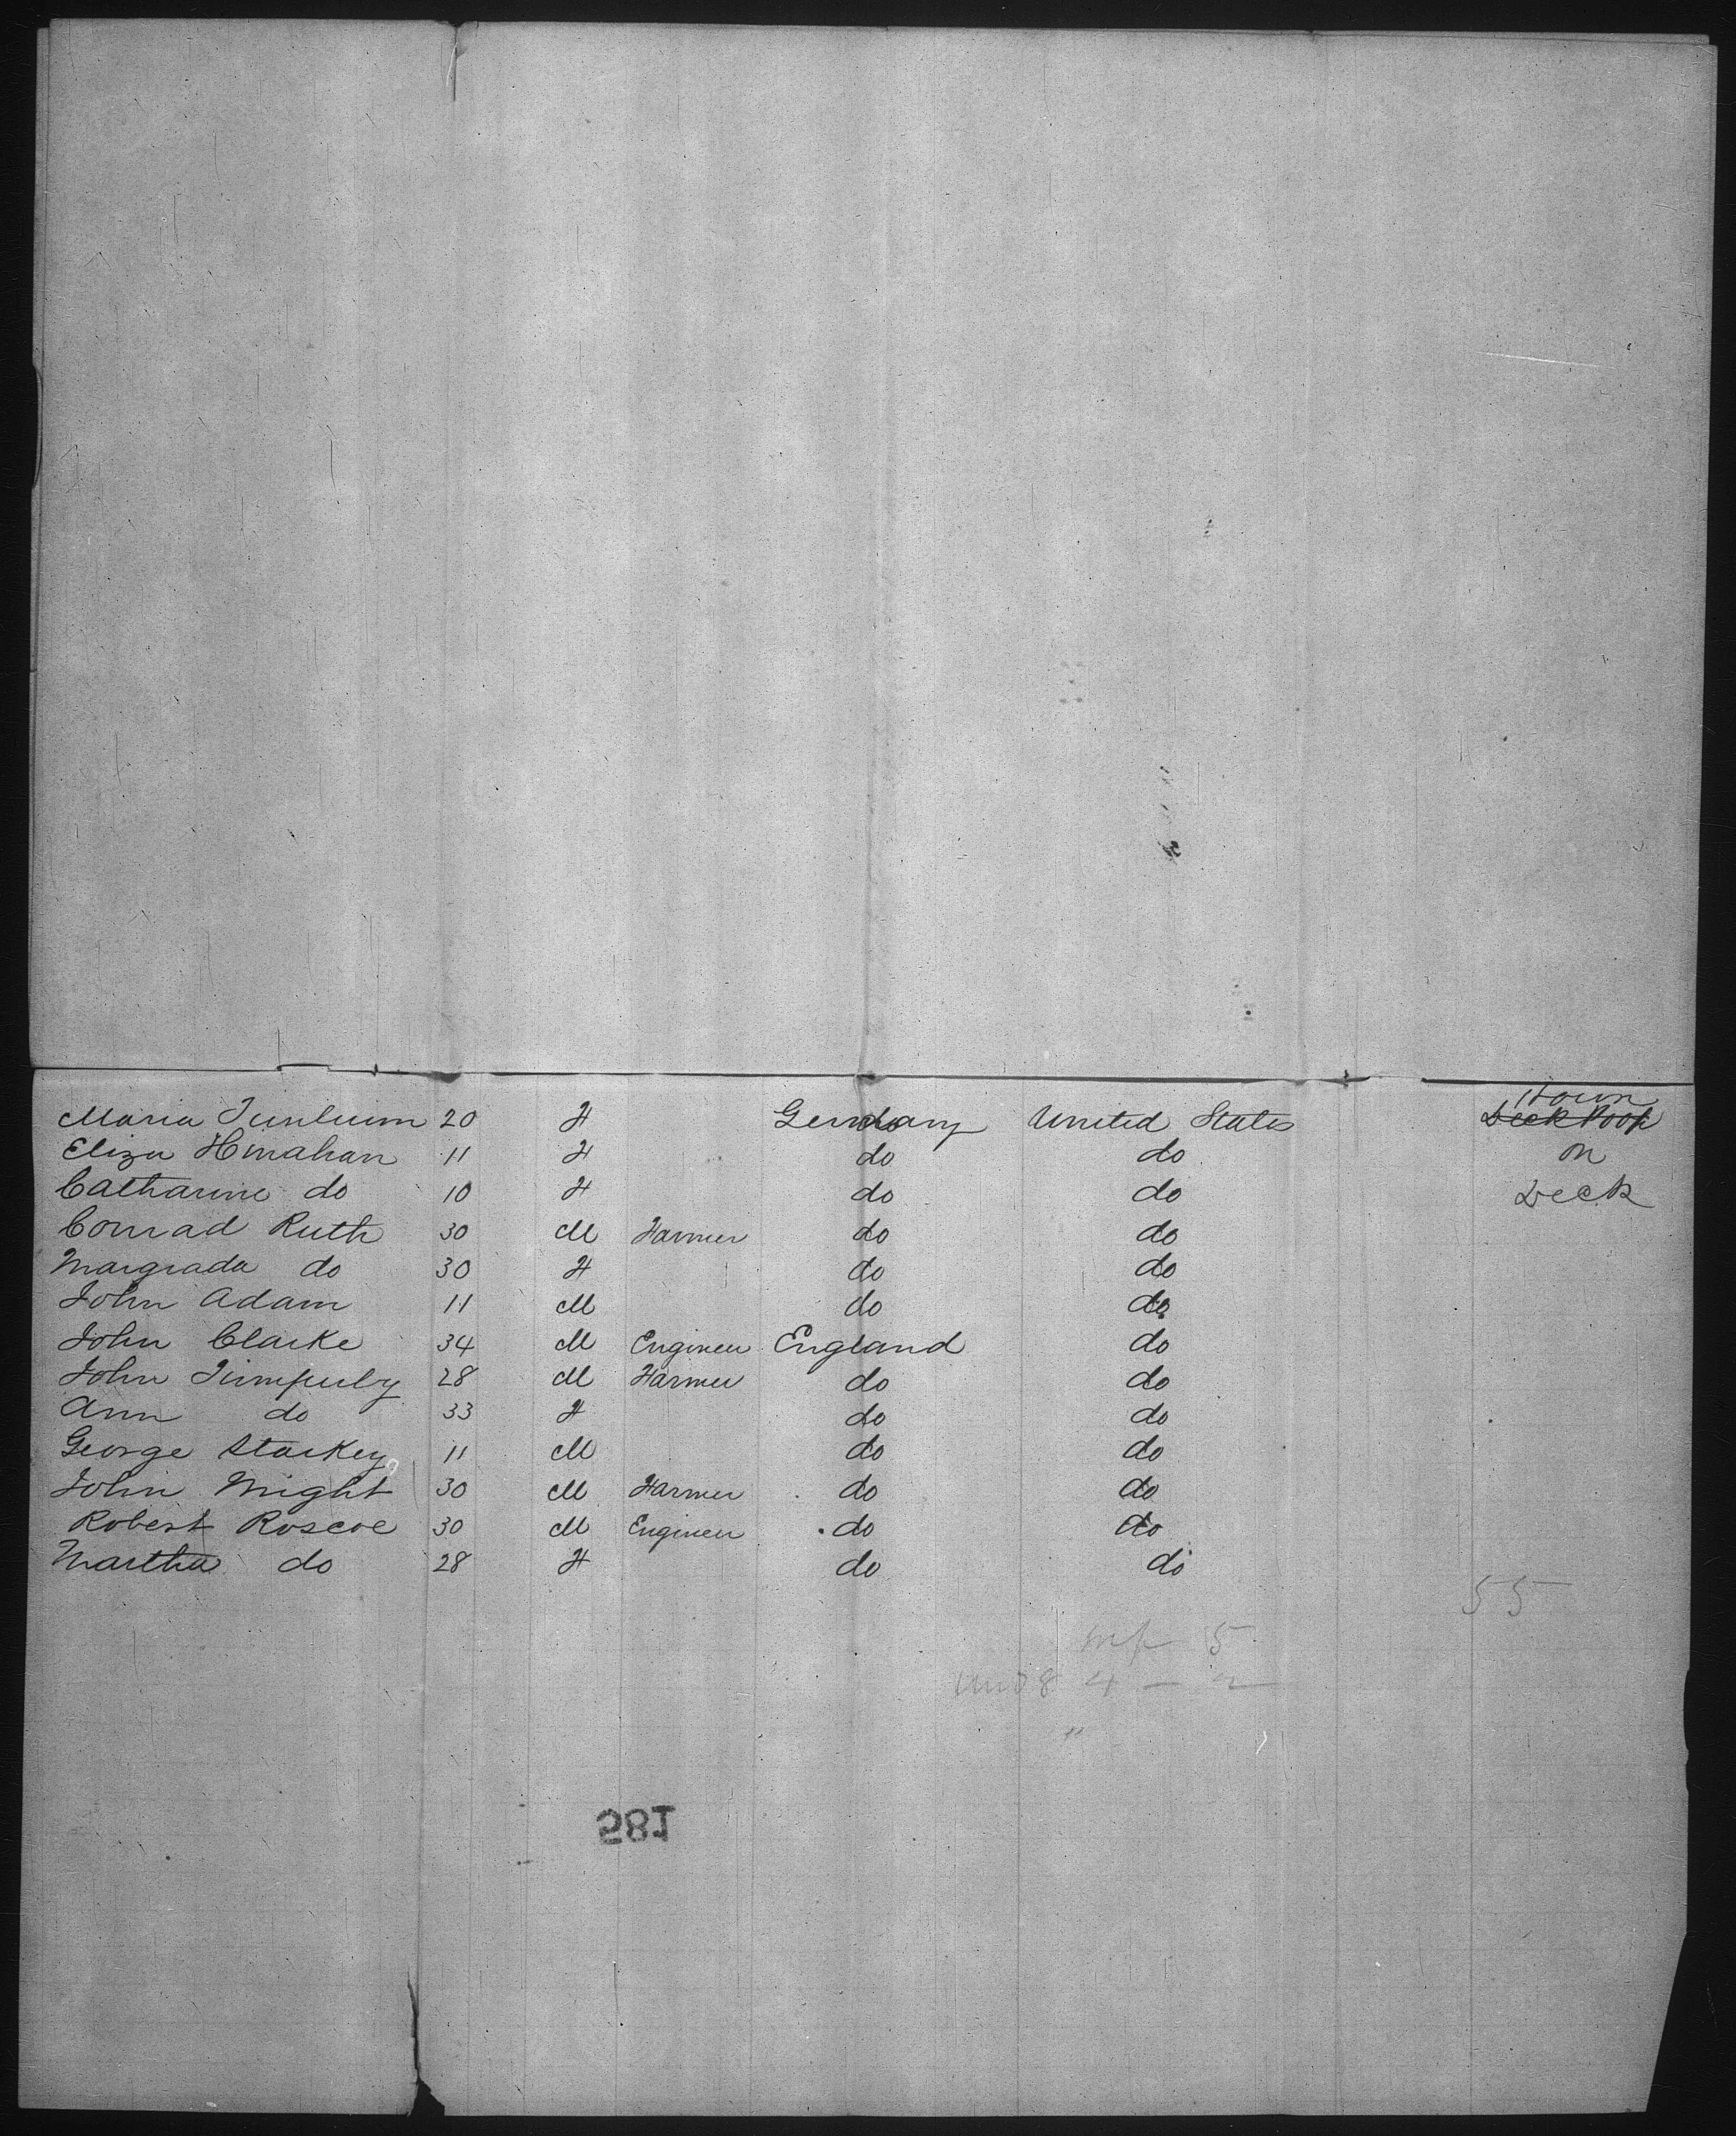 Maria 20 F Germany United States Deck Poop
Eliza Hinahan 11 F do do on
Catharine do 10 F do do Deck
Conrad Ruth 30 M Farmer do do
Margrada do 30 F do do
John Adam 11 M do do
John Clarke 34 M Engineer England do
John 28 M Farmer do do
Ann do 33 F do do
George Starkey 11 M do do
John Might 30 M Farmer do do
Robert Roscoe 30 M Engineer do do
Martha do 28 F do do
55
5
581